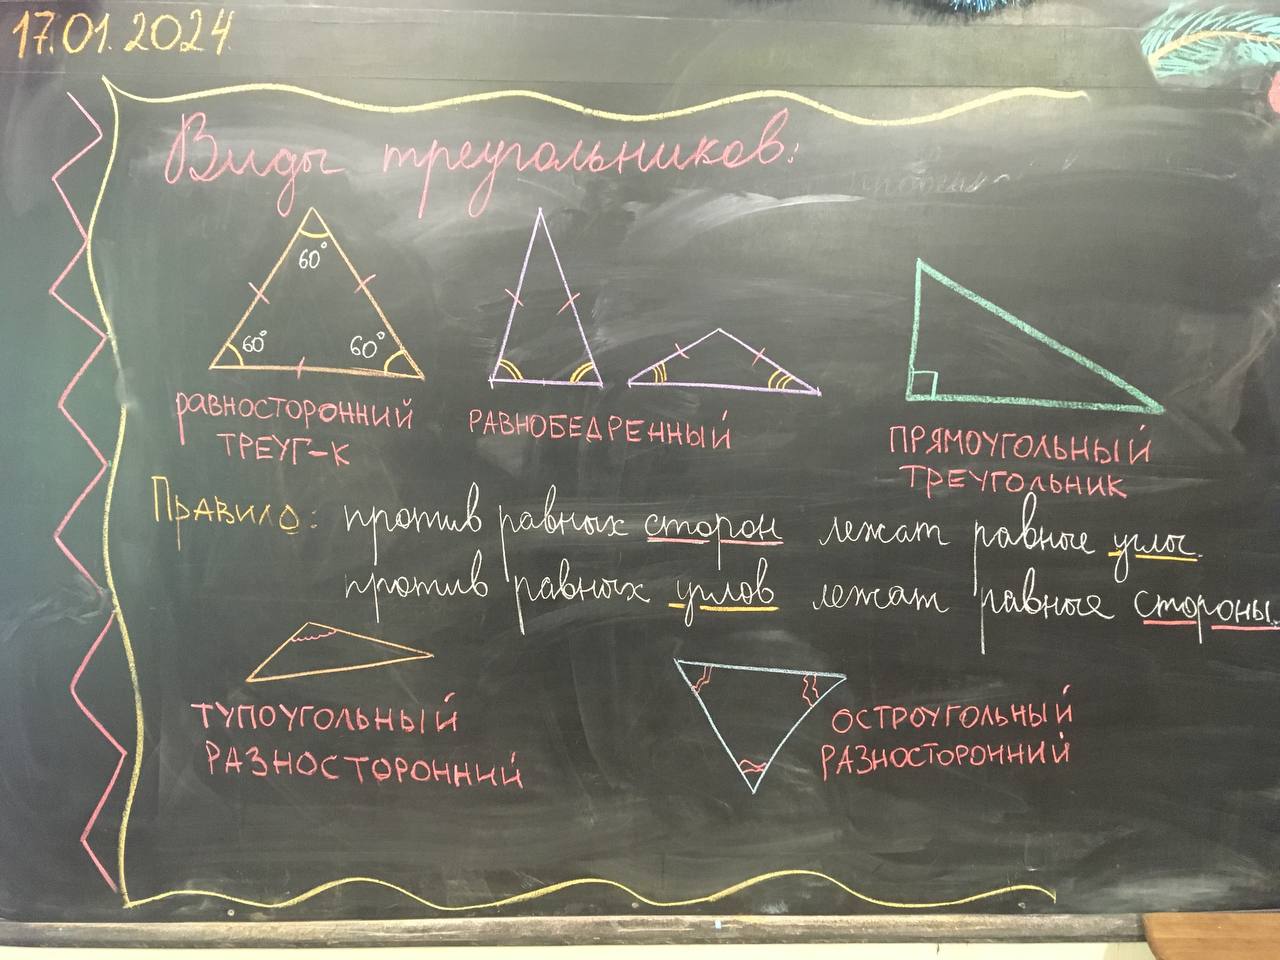 17.01.2024
Виды треугольников:
60°
60° 60°
равносторонний
ТРЕУГ-К
РАВНОБЕДРЕННЫЙ
ПРЯМОУГОЛЬНЫЙ
ТРЕУГОЛЬНИК
Правило: против равных сторон лежат равные углы.
против равных углов лежат равные стороны.
ТУПОУГОЛЬНЫЙ
РАЗНОСТОРОННИЙ
ОСТРОУГОЛЬНЫЙ
РАЗНОСТОРОННИЙ